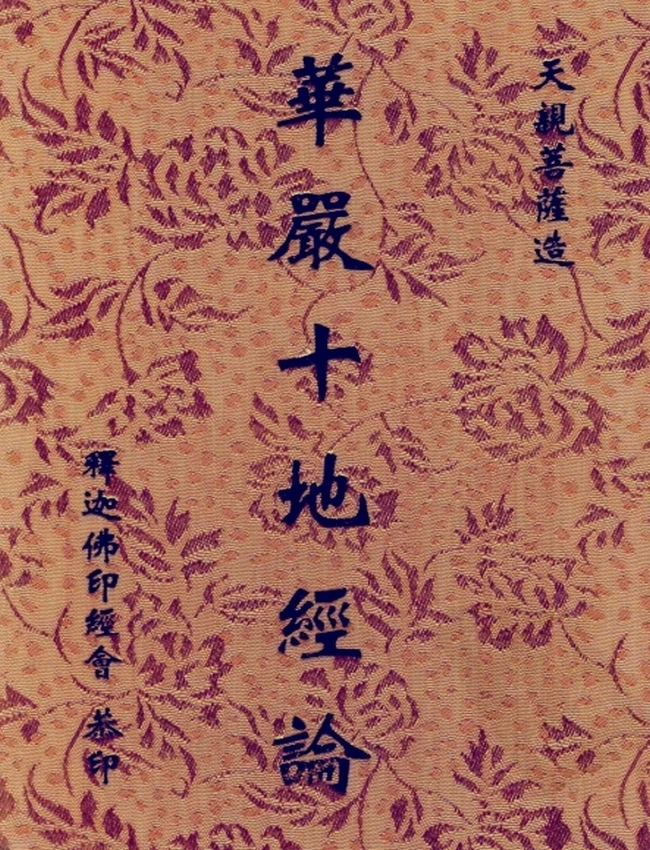 天親菩薩造
華嚴十地經論
釋迦佛印經會 恭印